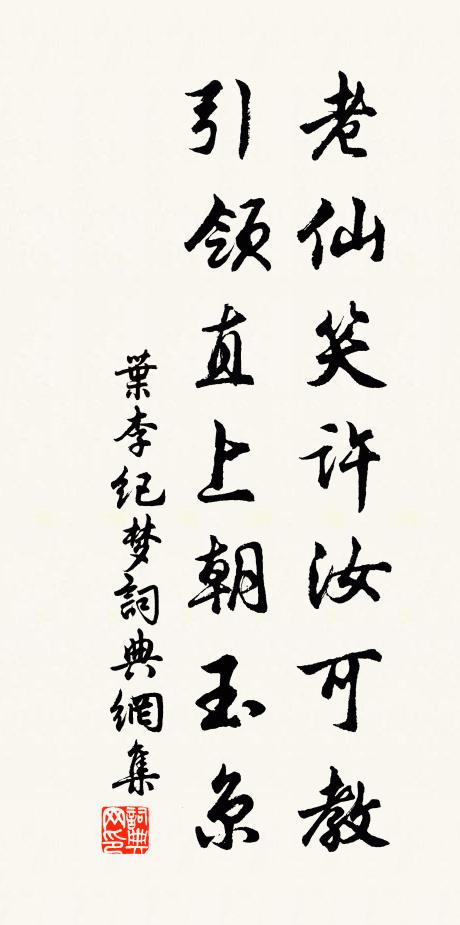 老仙笑许汝可教
引领直上朝玉京
葉李纪梦詞典網集
詞典网印